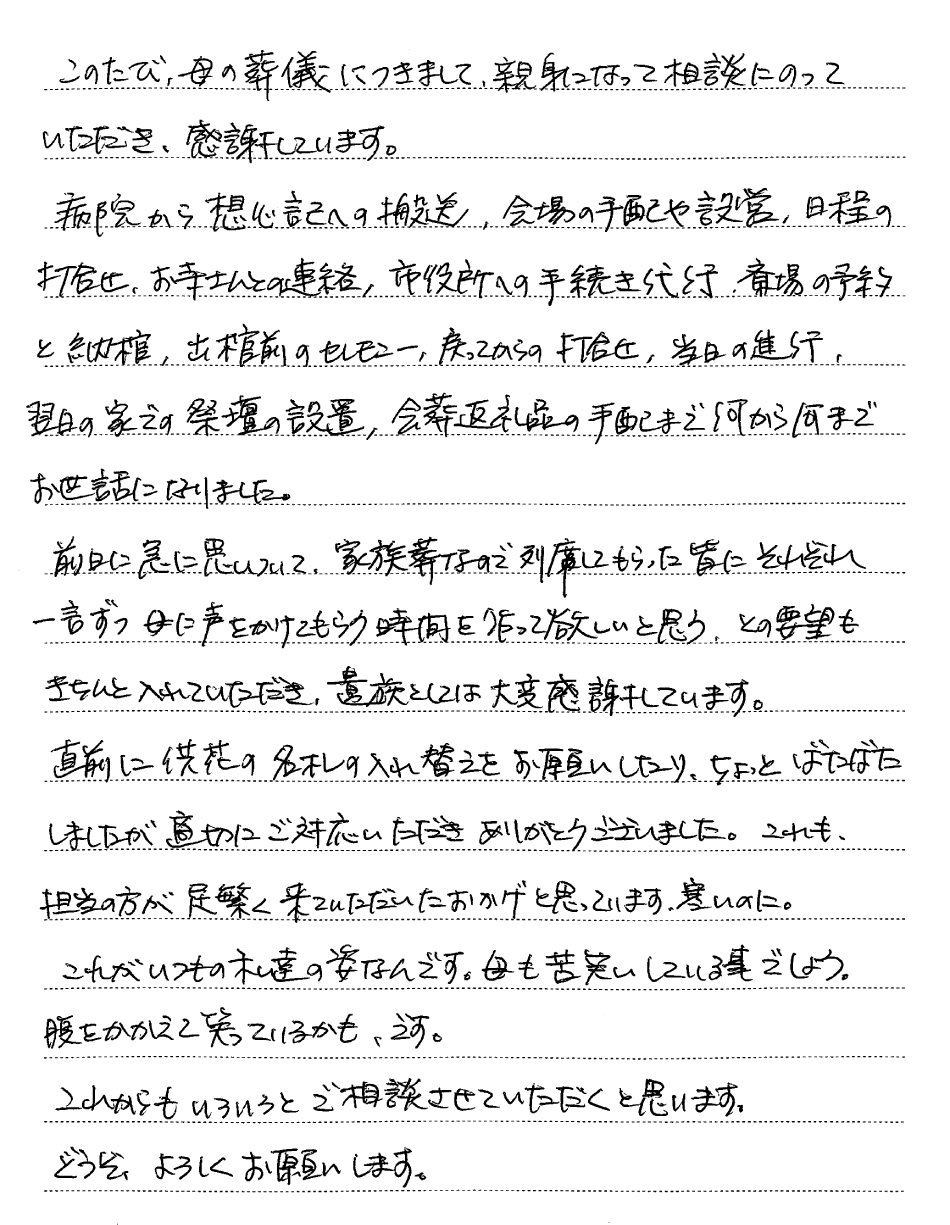 このたび、母の葬儀につきまして、親身になって相談にのって
いただき、感謝しています。
病院から想心記への搬送、会場の手配や設営、日程の
打合せ、お寺さんとの連絡、市役所への手続き代行、斎場の予約
と納棺、出棺前のセレモニー、戻ってからの打合せ、当日の進行、
翌日の家での祭壇の設置、会葬返礼品の手配まで何から何まで
お世話になりました。
前日に急に思いついて、家族葬なので列席してもらった皆にそれぞれ
一言ずつ母に声をかけてもらう時間を作って欲しいと思う、との要望も
きちんと入れていただき、遺族としては大変感謝しています。
直前に供花の名札の入れ替えをお願いしたり、ちょっとばたばた
しましたが適切にご対応いただきありがとうございました。これも、
担当の方が足繁く来ていただいたおかげと思っています、寒いのに。
これがいつもの私達の姿なんです。母も苦笑いしている事でしょう。
腹をかかえて笑っているかも、です。
これからもいろいろとご相談させていただくと思います。
どうぞ、よろしくお願いします。